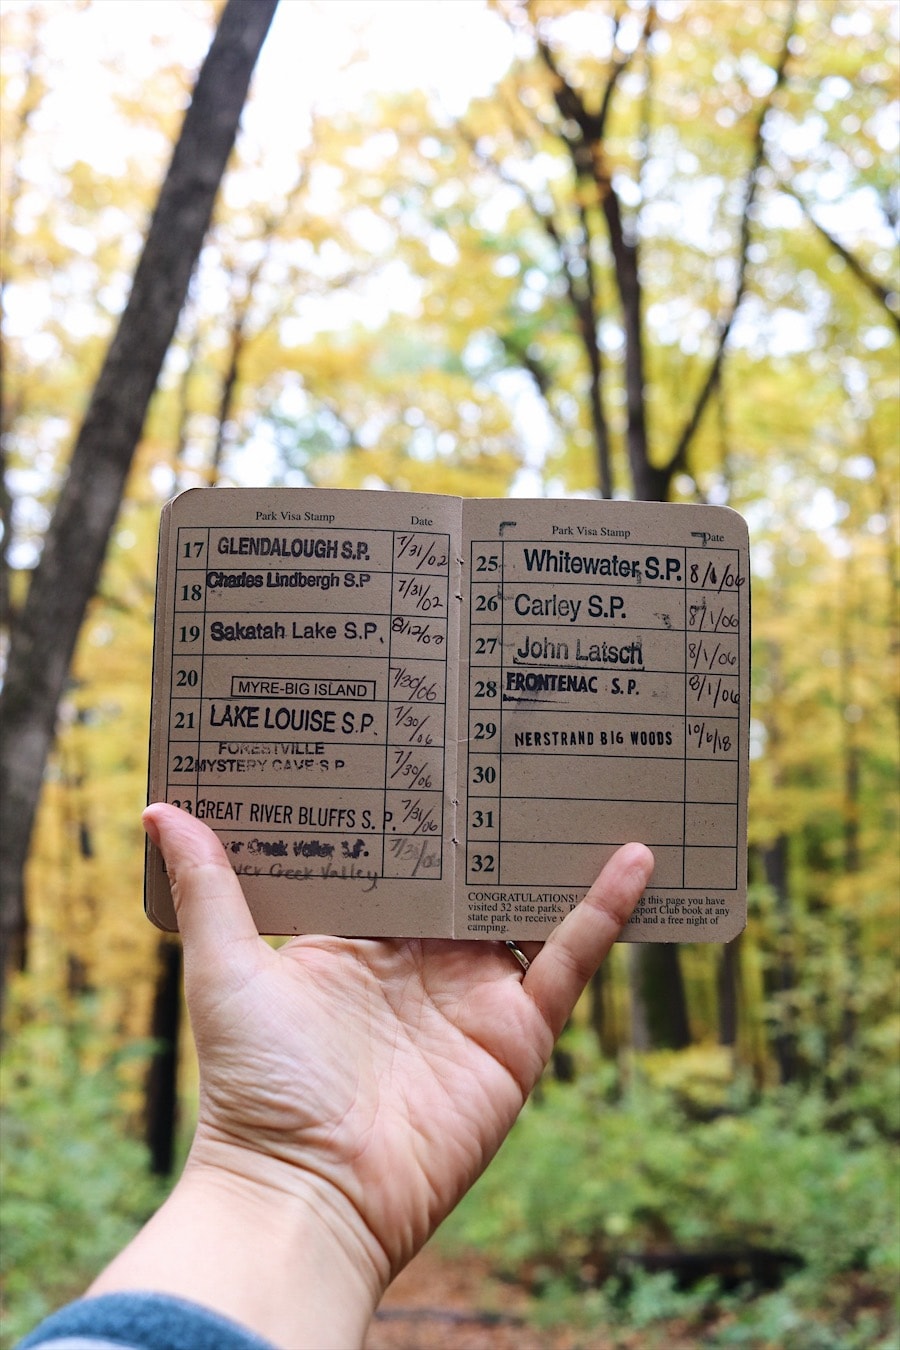 Park Visa Stamp Date
17 GLENDALOUGH S.P. 7/31/02
18 Charles Lindbergh S.P 7/31/02
19 Sakatah Lake S.P.
20 MYRE-BIG ISLAND 7/30/06
21 LAKE LOUISE S.P. 7/30/06
22 FORESTVILLE
MYSTERY CAVE S P 7/30/06
23 GREAT RIVER BLUFFS S. P. 7/31/06
Creek Valley S.P.
Creek Valley
Park Visa Stamp Date
25 Whitewater S.P. 8/1/06
26 Carley S.P. 8/1/06
27 John Latsch 8/1/06
28 FRONTENAC S.P. 8/1/06
29 NERSTRAND BIG WOODS 10/6/18
30
31
32
CONGRATULATIONS! this page you have
visited 32 state parks. Club book at any
state park to receive and a free night of
camping.